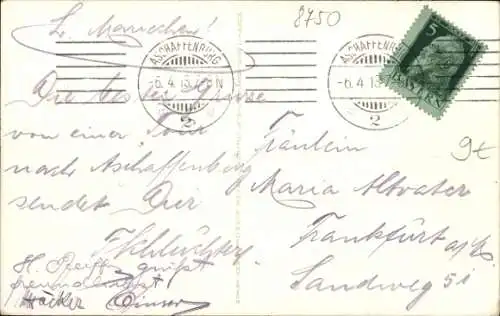 8750
L. Mariechen!
ASCHAFFENBURG
-6.4.13
2
ASCHAFFENBURG
-6.4.13
2
5
BAYERN
Die besten Grüsse
von einer Tour
nach Aschaffenburg
sendet Dir
H. grüßt
Fräulein
Maria Altvater
Frankfurt a/M.
Sandweg 51
9€